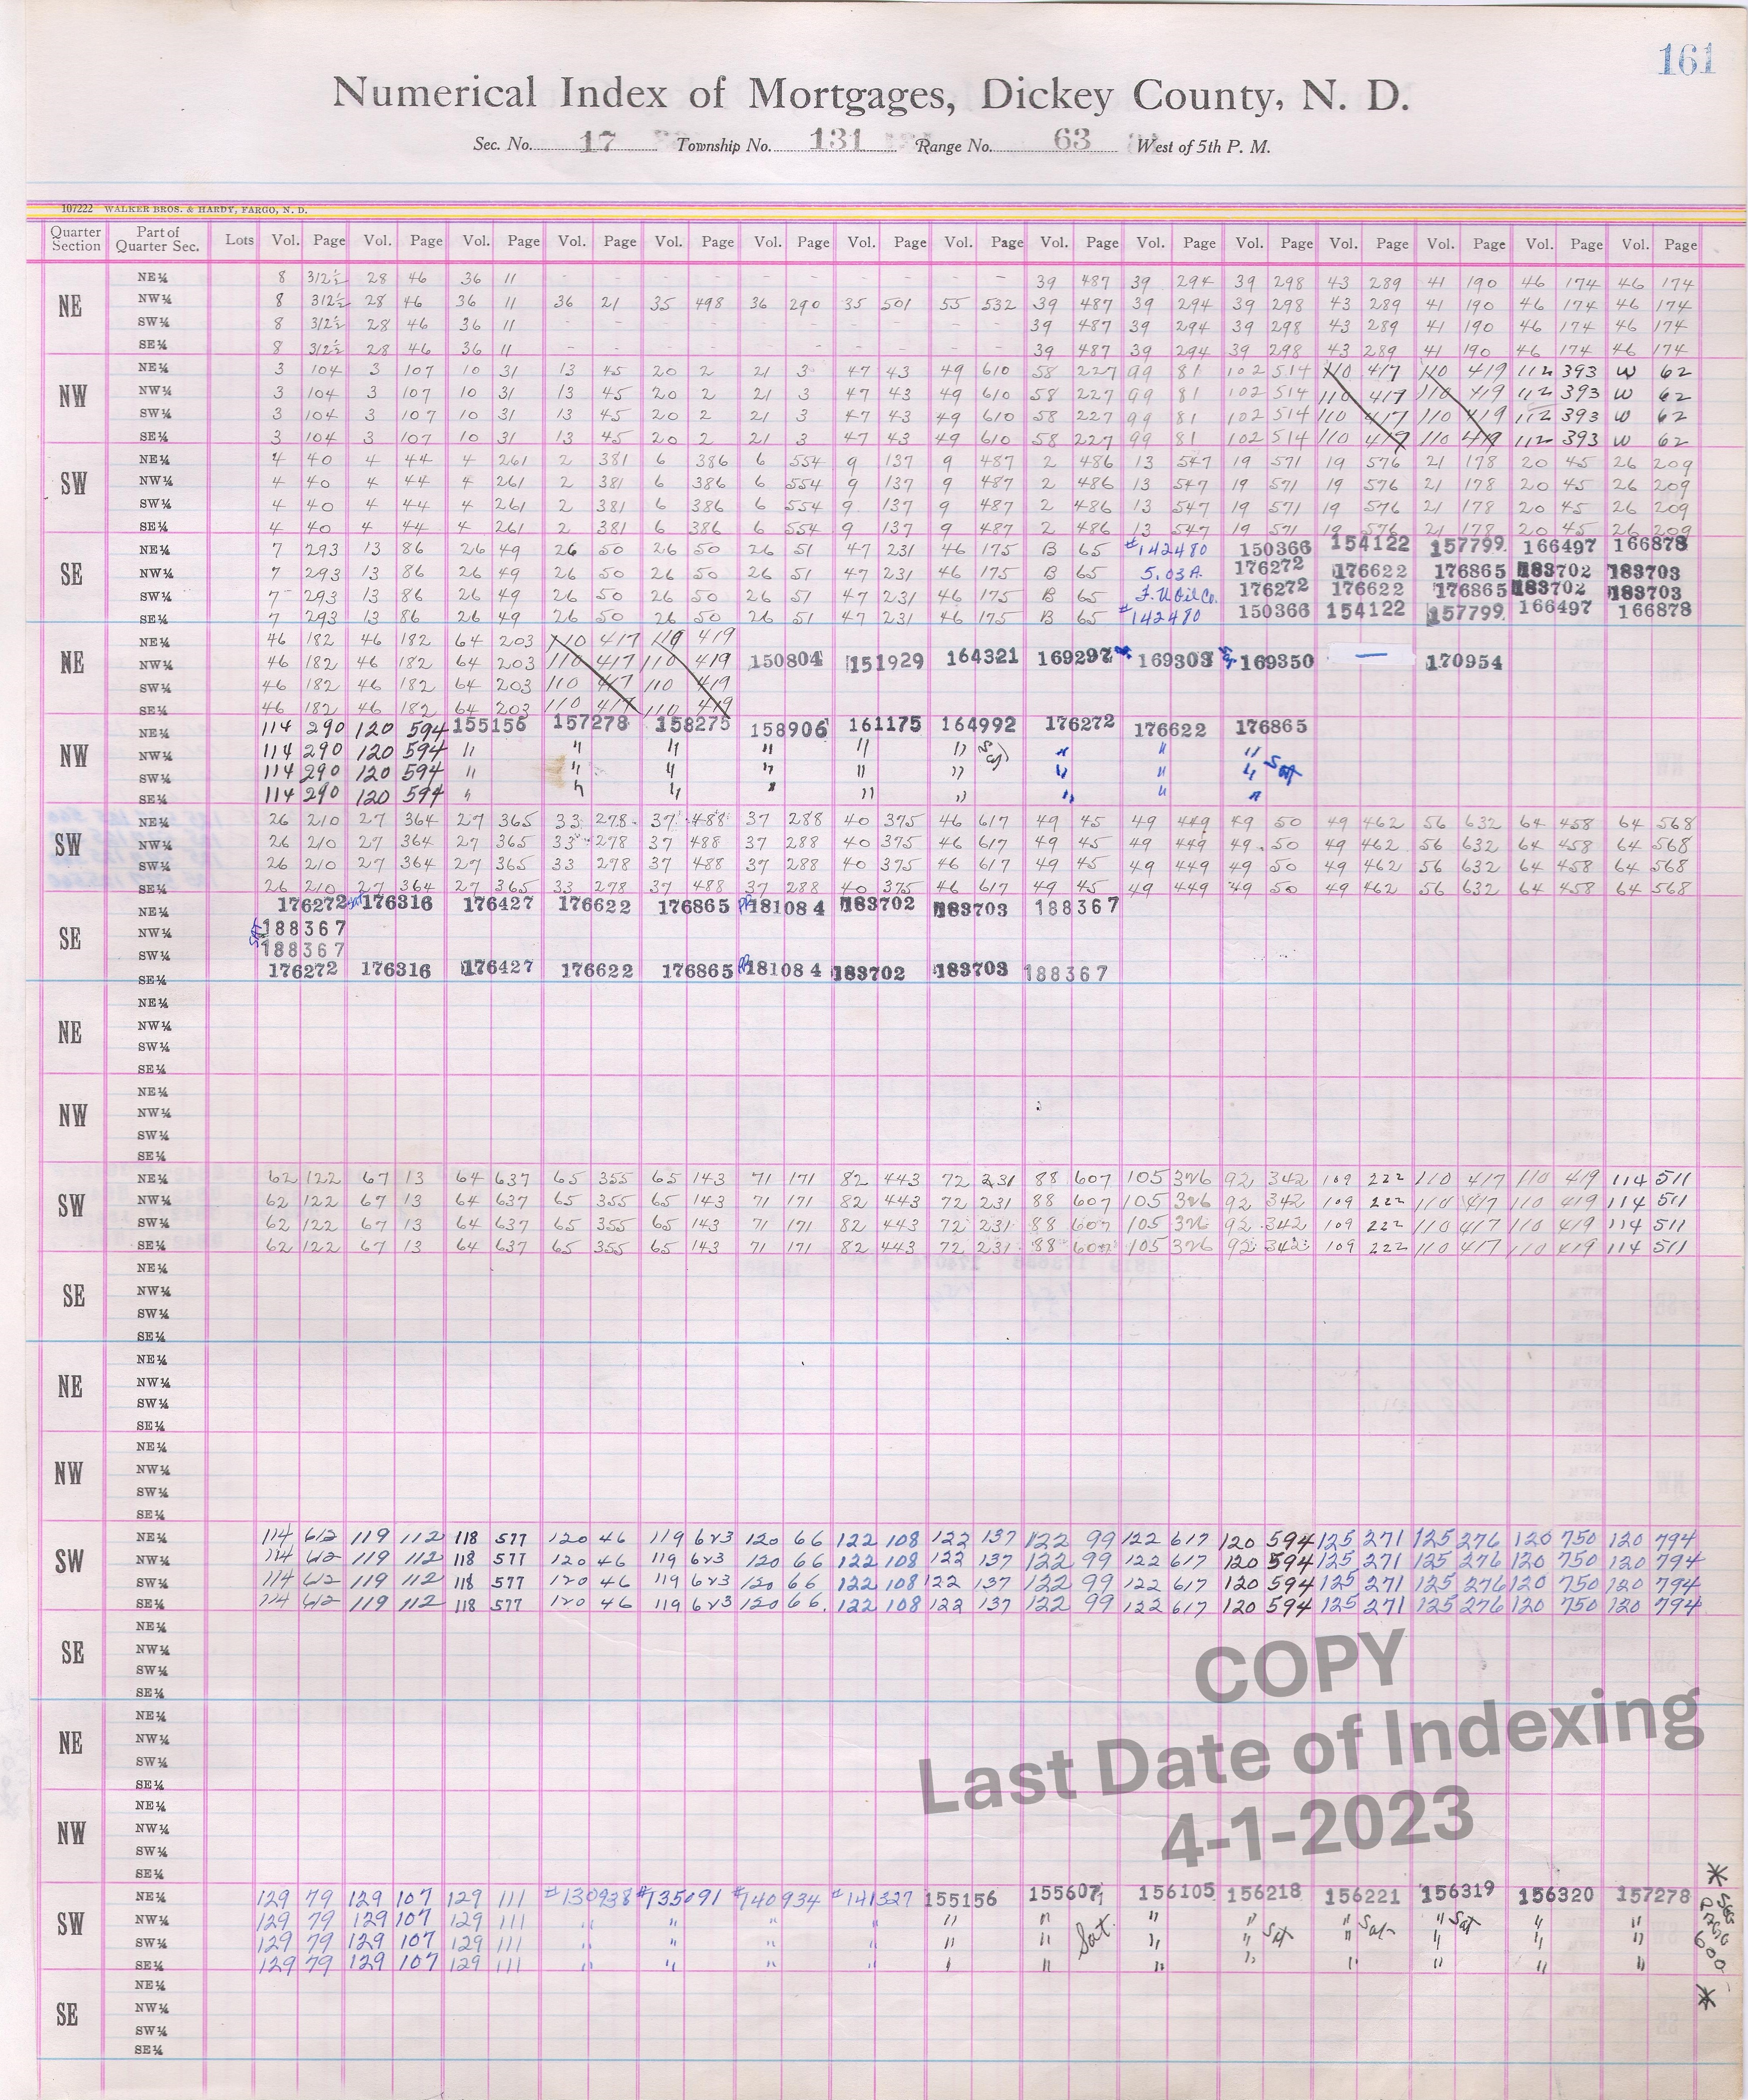 161
Numerical Index of Mortgages, Dickey County, N. D.
Sec. No. 17 Township No. 131 Range No. 63 West of 5th P. M.
107222 WALKER BROS. & HARDY, FARGO, N. D.
Quarter Section Part of Quarter Sec. Lots Vol. Page Vol. Page Vol. Page Vol. Page Vol. Page Vol. Page Vol. Page Vol. Page Vol. Page Vol. Page Vol. Page Vol. Page Vol. Page Vol. Page Vol. Page
NE
NE¼ 8 312½ 28 46 36 11 - - - - - - - - - - 39 487 39 294 39 298 43 289 41 190 46 174 46 174
NW¼ 8 312½ 28 46 36 11 36 21 35 498 36 290 35 501 55 532 39 487 39 294 39 298 43 289 41 190 46 174 46 174
SW¼ 8 312½ 28 46 36 11 - - - - - - - - - - 39 487 39 294 39 298 43 289 41 190 46 174 46 174
SE¼ 8 312½ 28 46 36 11 - - - - - - - - - - 39 487 39 294 39 298 43 289 41 190 46 174 46 174
NW
NE¼ 3 104 3 107 10 31 13 45 20 2 21 3 47 43 49 610 58 227 99 81 102 514 110 417 110 419 112 393 W 62
NW¼ 3 104 3 107 10 31 13 45 20 2 21 3 47 43 49 610 58 227 99 81 102 514 110 417 110 419 112 393 W 62
SW¼ 3 104 3 107 10 31 13 45 20 2 21 3 47 43 49 610 58 227 99 81 102 514 110 417 110 419 112 393 W 62
SE¼ 3 104 3 107 10 31 13 45 20 2 21 3 47 43 49 610 58 227 99 81 102 514 110 417 110 419 112 393 W 62
SW
NE¼ 4 40 4 44 4 261 2 381 6 386 6 554 9 137 9 487 2 486 13 547 19 571 19 576 21 178 20 45 26 209
NW¼ 4 40 4 44 4 261 2 381 6 386 6 554 9 137 9 487 2 486 13 547 19 571 19 576 21 178 20 45 26 209
SW¼ 4 40 4 44 4 261 2 381 6 386 6 554 9 137 9 487 2 486 13 547 19 571 19 576 21 178 20 45 26 209
SE¼ 4 40 4 44 4 261 2 381 6 386 6 554 9 137 9 487 2 486 13 547 19 571 19 576 21 178 20 45 26 209
SE
NE¼ 7 293 13 86 26 49 26 50 26 50 26 51 47 231 46 175 B 65 #142480 150366 154122 157799 166497 166878
NW¼ 7 293 13 86 26 49 26 50 26 50 26 51 47 231 46 175 B 65 5.03A. 176272 176622 176865 183702 183703
SW¼ 7 293 13 86 26 49 26 50 26 50 26 51 47 231 46 175 B 65 F.U Oil Co. 176272 176622 176865 183702 183703
SE¼ 7 293 13 86 26 49 26 50 26 50 26 51 47 231 46 175 B 65 #142480 150366 154122 157799 166497 166878
NE
NE¼ 46 182 46 182 64 203 110 417 110 419
NW¼ 46 182 46 182 64 203 110 417 110 419 150804 151929 164321 169297 169303 169350 — 170954
SW¼ 46 182 46 182 64 203 110 417 110 419
SE¼ 46 182 46 182 64 203 110 417 110 419
NW
NE¼ 114 290 120 594 155156 157278 158275 158906 161175 164992 176272 176622 176865
NW¼ 114 290 120 594 " " " " " " " " "
SW¼ 114 290 120 594 " " " " " " " " " Sat
SE¼ 114 290 120 594 " " " " " " " " "
SW
NE¼ 26 210 27 364 27 365 33 278 37 488 37 288 40 375 46 617 49 45 49 449 49 50 49 462 56 632 64 458 64 568
NW¼ 26 210 27 364 27 365 33 278 37 488 37 288 40 375 46 617 49 45 49 449 49 50 49 462 56 632 64 458 64 568
SW¼ 26 210 27 364 27 365 33 278 37 488 37 288 40 375 46 617 49 45 49 449 49 50 49 462 56 632 64 458 64 568
SE¼ 26 210 27 364 27 365 33 278 37 488 37 288 40 375 46 617 49 45 49 449 49 50 49 462 56 632 64 458 64 568
SE
NE¼ 176272 176316 176427 176622 176865 181084 183702 183703 188367
NW¼ 188367
SW¼ 188367
SE¼ 176272 176316 176427 176622 176865 181084 183702 183703 188367
NE
NE¼
NW¼
SW¼
SE¼
NW
NE¼
NW¼
SW¼
SE¼
SW
NE¼ 62 122 67 13 64 637 65 355 65 143 71 171 82 443 72 231 88 607 105 326 92 342 109 222 110 417 110 419 114 511
NW¼ 62 122 67 13 64 637 65 355 65 143 71 171 82 443 72 231 88 607 105 326 92 342 109 222 110 417 110 419 114 511
SW¼ 62 122 67 13 64 637 65 355 65 143 71 171 82 443 72 231 88 607 105 326 92 342 109 222 110 417 110 419 114 511
SE¼ 62 122 67 13 64 637 65 355 65 143 71 171 82 443 72 231 88 607 105 326 92 342 109 222 110 417 110 419 114 511
SE
NE¼
NW¼
SW¼
SE¼
NE
NE¼
NW¼
SW¼
SE¼
NW
NE¼
NW¼
SW¼
SE¼
SW
NE¼ 114 612 119 112 118 577 120 46 119 623 120 66 122 108 122 137 122 99 122 617 120 594 125 271 125 276 120 750 120 794
NW¼ 114 612 119 112 118 577 120 46 119 623 120 66 122 108 122 137 122 99 122 617 120 594 125 271 125 276 120 750 120 794
SW¼ 114 612 119 112 118 577 120 46 119 623 120 66 122 108 122 137 122 99 122 617 120 594 125 271 125 276 120 750 120 794
SE¼ 114 612 119 112 118 577 120 46 119 623 120 66 122 108 122 137 122 99 122 617 120 594 125 271 125 276 120 750 120 794
SE
NE¼
NW¼
SW¼
SE¼
COPY
Last Date of Indexing
4-1-2023
NE
NE¼
NW¼
SW¼
SE¼
NW
NE¼
NW¼
SW¼
SE¼
SW
NE¼ 129 79 129 107 129 111 #130938 #135091 #140934 #141327 155156 155607 156105 156218 156221 156319 156320 157278
NW¼ 129 79 129 107 129 111 " " " " " " " " " Sat " Sat " "
SW¼ 129 79 129 107 129 111 " " " " " " Sat " " Sat " " " "
SE¼ 129 79 129 107 129 111 " " " " " " " " " " " "
* See Page 600 *
SE
NE¼
NW¼
SW¼
SE¼